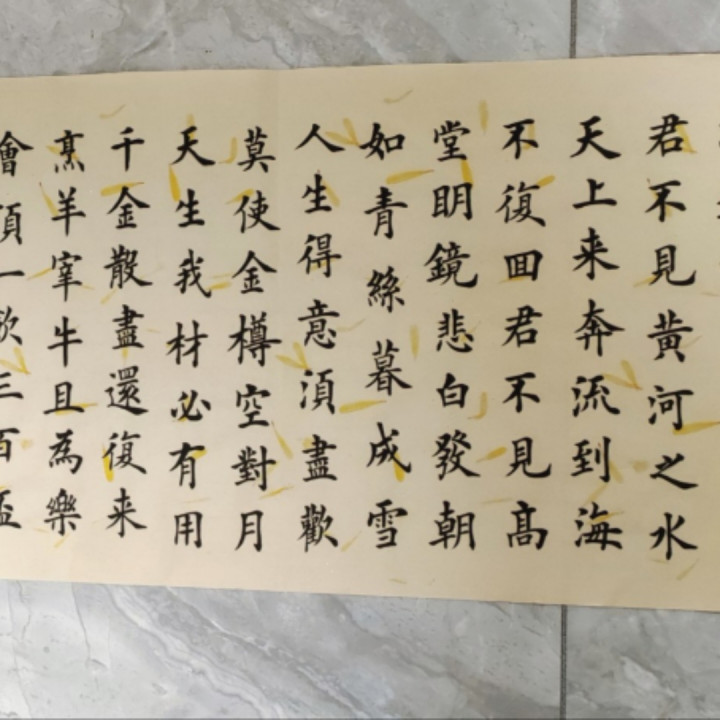 君不見黄河之水
天上来奔流到海
不復回君不見髙
堂明鏡悲白發朝
如青絲暮成雪
人生得意湏盡歡
莫使金樽空對月
天生我材必有用
千金散盡還復来
烹羊宰牛且為樂
會湏一飲三百盃